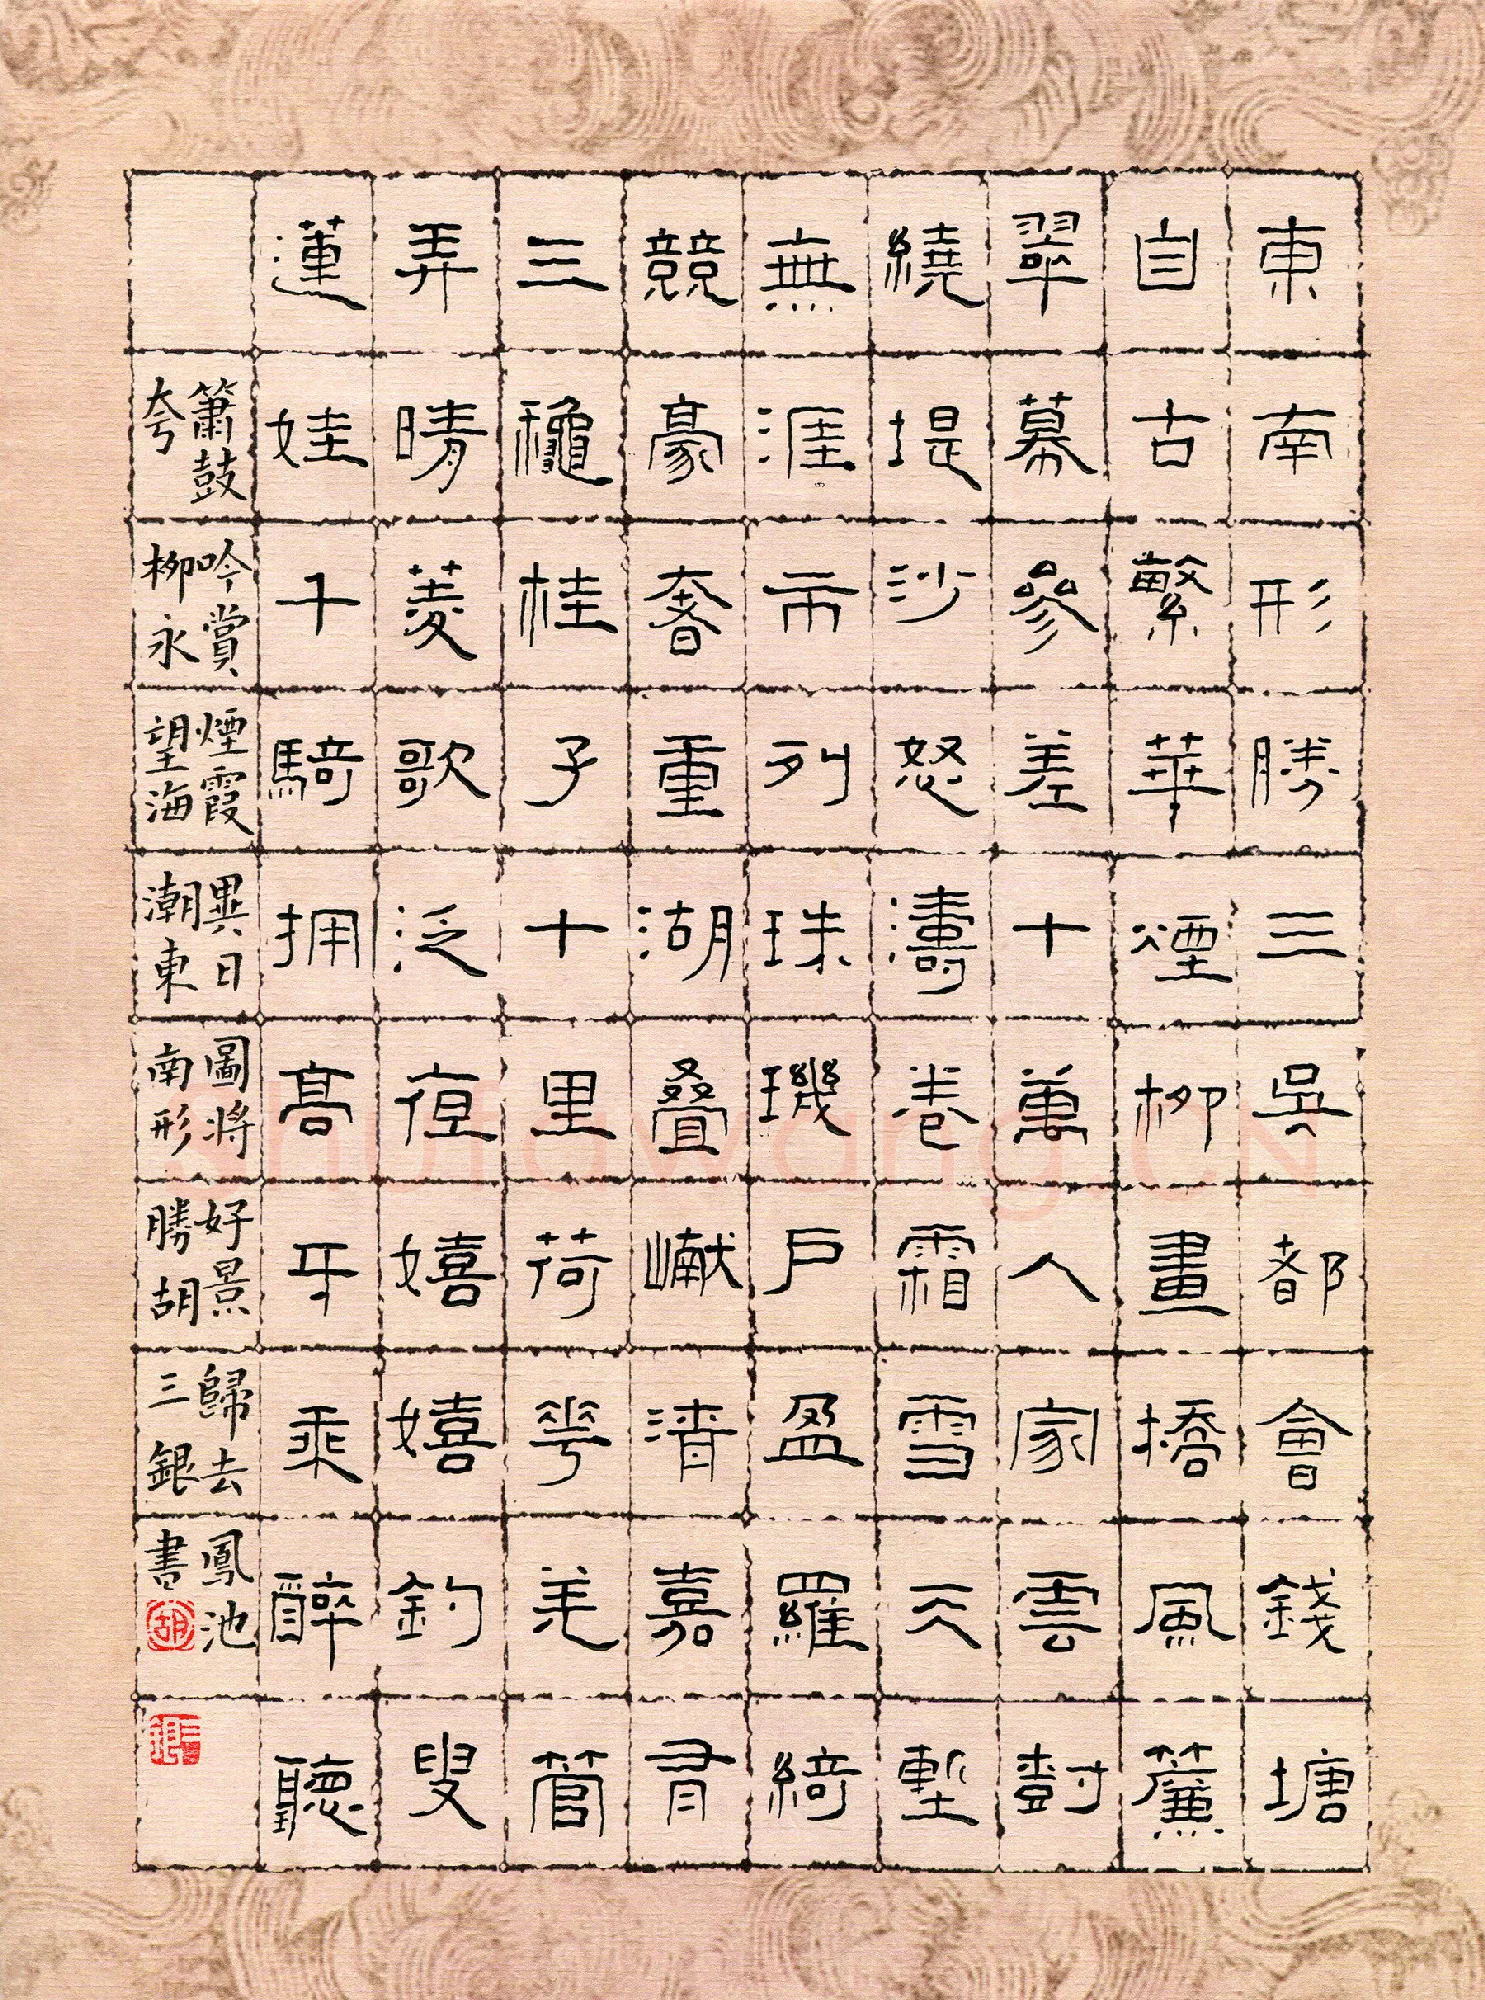 東南形勝三吳都會錢塘
自古繁華煙柳畫橋風簾
翠幕參差十萬人家雲樹
繞堤沙怒濤卷霜雪天塹
無涯市列珠璣戶盈羅綺
競豪奢重湖叠巘清嘉有
三穐桂子十里荷花羌管
弄晴菱歌泛夜嬉嬉釣叟
蓮娃千騎拥高牙乘醉聽
簫鼓吟賞煙霞異日圖將好景歸去鳳池
夸柳永望海潮東南形勝胡三銀書
胡
三銀
shufawang.CN